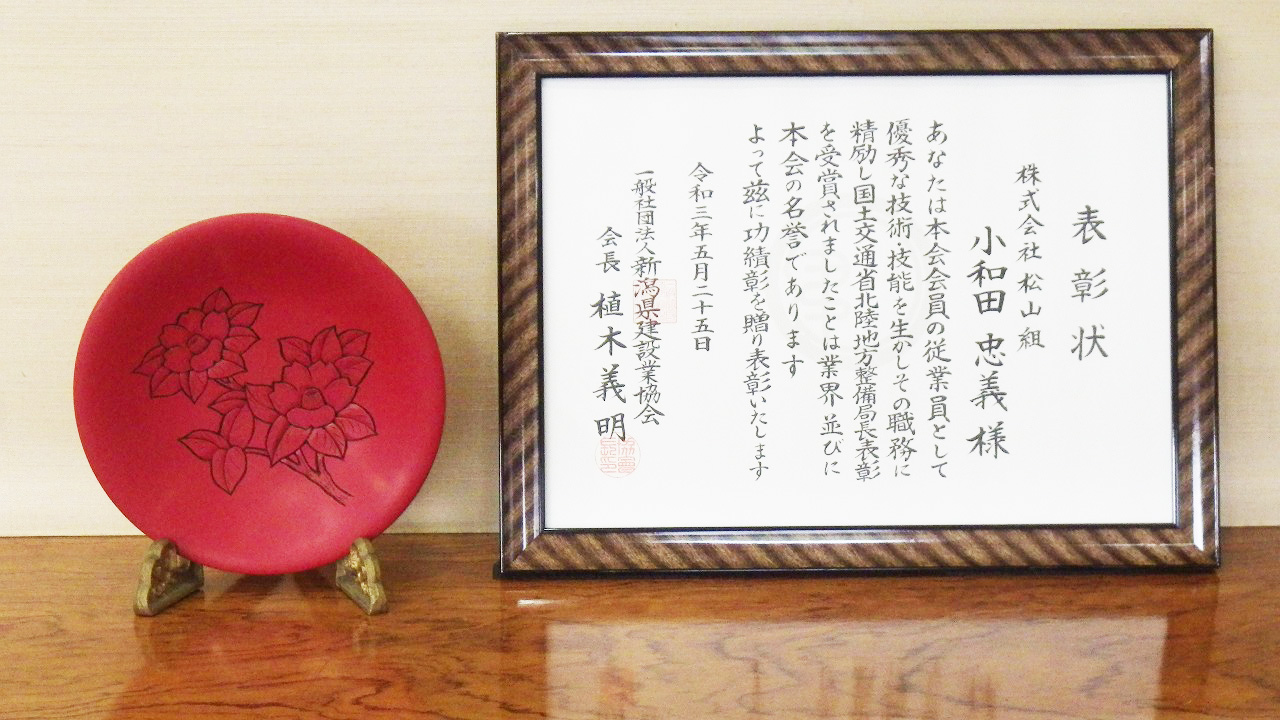 表彰状
株式会社 松山組
小和田 忠義 様
あなたは本会会員の従業員として
優秀な技術・技能を生かしその職務に
精励し国土交通省北陸地方整備局長表彰
を受賞されましたことは業界並びに
本会の名誉であります
よって茲に功績彰を贈り表彰いたします
令和三年五月二十五日
一般社団法人新潟県建設業協会
会長 植木義明